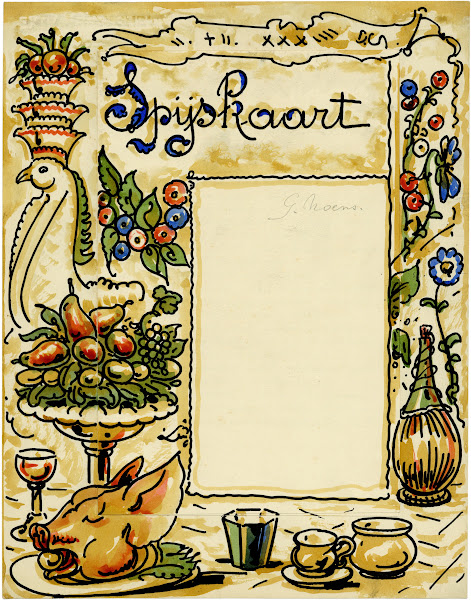 Spijskaart
G. Moens.